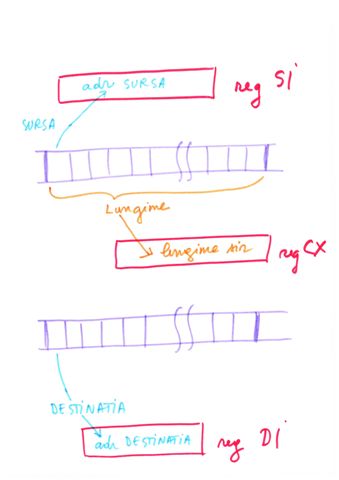 adr SURSA reg SI
SURSA
Lungime
lungime sir reg CX
DESTINATIA
adr DESTINATIA reg DI